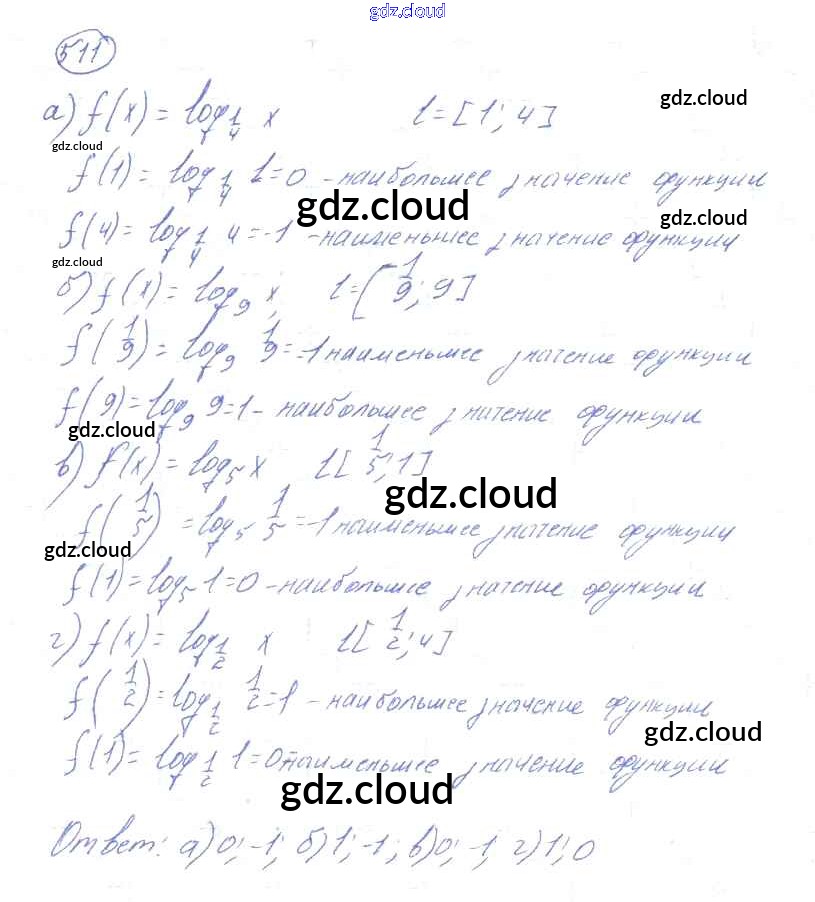 gdz.cloud
511
а) f(x) = log_{1/4} x l = [1; 4] gdz.cloud
gdz.cloud
f(1) = log_{1/4} 1 = 0 - наибольшее значение функции
gdz.cloud gdz.cloud
f(4) = log_{1/4} 4 = -1 - наименьшее значение функции
gdz.cloud
б) f(x) = log_9 x, l = [1/9; 9]
f(1/9) = log_9 1/9 = -1 наименьшее значение функции
f(9) = log_9 9 = 1 - наибольшее значение функции
gdz.cloud
в) f(x) = log_5 x l [1/5; 1]
gdz.cloud
f(1/5) = log_5 1/5 = -1 наименьшее значение функции
gdz.cloud
f(1) = log_5 1 = 0 - наибольшее значение функции
г) f(x) = log_{1/2} x l [1/2; 4]
f(1/2) = log_{1/2} 1/2 = 1 - наибольшее значение функции
gdz.cloud
f(1) = log_{1/2} 1 = 0 - наименьшее значение функции
gdz.cloud
Ответ: а) 0; -1; б) 1; -1; в) 0; -1; г) 1; 0